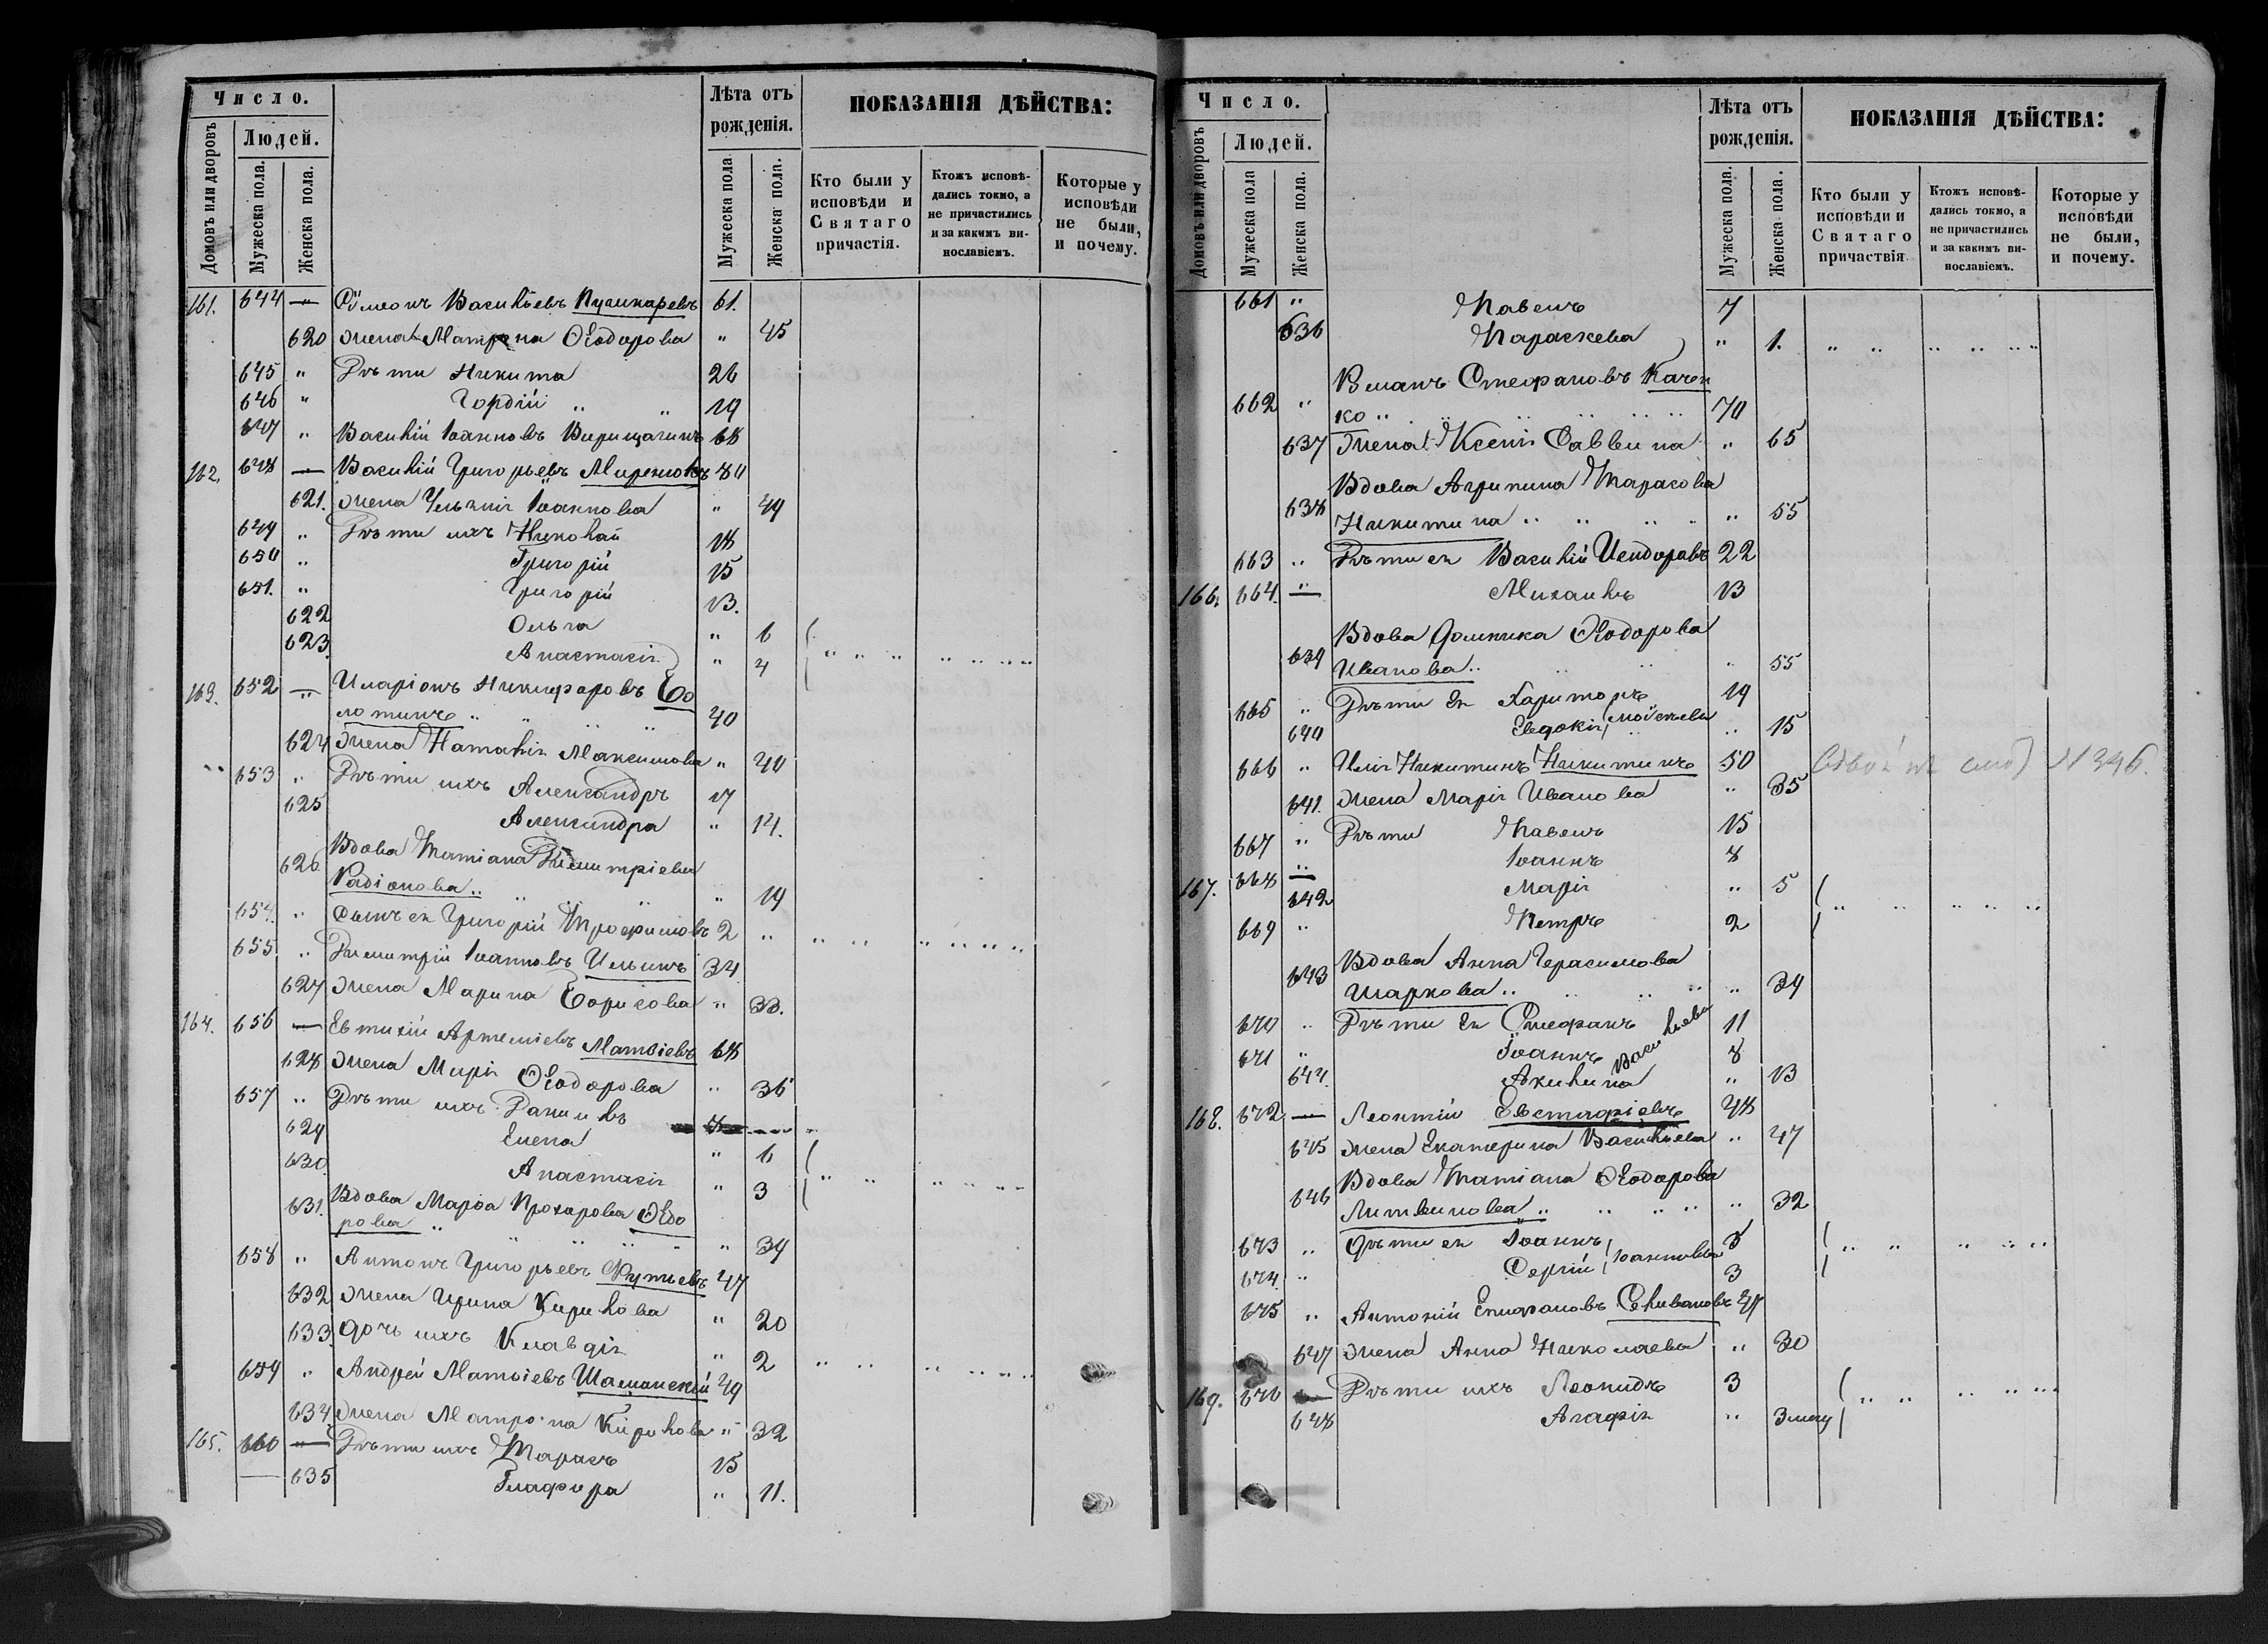 Число.
Лѣта отъ рожденія.
ПОКАЗАНІЯ ДѢЙСТВА:
Домовъ или дворовъ
Людей.
Мужеска пола.
Женска пола.
Мужеска пола
Женска пола.
Кто были у исповѣди и Святаго причастія.
Ктожъ исповѣдались токмо, а не причастились и за какимъ винославіемъ.
Которые у исповѣди не были, и почему.
161. 644 — Сѵмеонъ Васильевъ Пушкаревъ 61.
620 Жена Матрона Ѳеодорова " 45
645 " Дѣти Никита 26
646 " Гордій 19
647 " Василій Іоанновъ 68
162. 648 — Василій Григорьевъ 80
621. Жена Іоаннова " 49
649 " Дѣти ихъ Николай 18
650 " Григорій 15
651. " Григорій 13.
622 Ольга " 6
623. Анастасія " 4
163. 652 — Иларіонъ Никифоровъ Бо
лотинъ 40
624 Жена Наталія Максимова " 40
653 " Дѣти ихъ Александръ 17
625 Александра " 14.
626 Вдова Татіана Димитріева
Радіонова " 19
654. " Сынъ ея Григорій Трофимовъ 2 "
655. " Димитрій Іоанновъ Ильинъ 34
627 Жена Марина Борисова " 33.
164. 656 — Евтихій Артеміевъ Матвіевъ 68
628 Жена Марія Ѳеодорова " 36
657 " Дѣти ихъ Даніилъ 8
629 Елена " 6
630. Анастасія " 3
631. Вдова Марѳа Прохорова Ѳедо
рова " 39
658 " Антонъ Григорьевъ 47
632 Жена Ирина Кирилова " 20
633. Дочь ихъ Клавдія " 2
659 " Андрей Матвіевъ Шаманскій 49
634. Жена Матрона Кирилова " 32
165. 660 — Дѣти ихъ Тарасъ 15
635 Глафира " 11.
Число.
Лѣта отъ рожденія.
ПОКАЗАНІЯ ДѢЙСТВА:
Домовъ или дворовъ
Людей.
Мужеска пола
Женска пола.
Мужеска пола.
Женска пола.
Кто были у исповѣди и Святаго причаствія
Ктожъ исповѣдались токмо, а не причастились и за какимъ винославіемъ.
Которые у исповѣди не были, и почему.
661 " Павелъ 7
636 Параскева " 1.
Стефановъ Качен
662 " ко 70
637 Жена Ксенія Саввина " 65
Вдова Агрипина Тарасова
638 Никитина " 55
663 " Дѣти ея Василій Исидоровъ 22
166. 664. — Михаилъ 13
Вдова Домника Ѳеодорова
639 Иванова " 55
665 " Дѣти ея Харитонъ 19
640 Евдокія Моисеевы " 15
666 " Илія Никитинъ Никитинъ 50 N 346.
641. Жена Марія Иванова " 35
667 " Дѣти Павелъ 15
167. 668 — Іоаннъ 8
642 Марія " 5
669 " Петръ 2
Вдова Анна Герасимова
643 Шаркова " 34
670 " Дѣти ея Стефанъ 11
671 " Іоаннъ Васильевы 8
644. Акилина " 13
168. 672 — Леонтій Евстафіевъ 48
645 Жена Екатерина Васильева " 47
Вдова Татіана Ѳеодорова
646 Литвинова " 32
673 " Дѣти ея Іоаннъ 5
674 " Сергій Іоанновы 3
675 " Антоній Епифановъ Селивановъ
647 Жена Анна Николаева " 30
169. 676 — Дѣти ихъ Леонидъ 3
648 Агафія " 3 мец